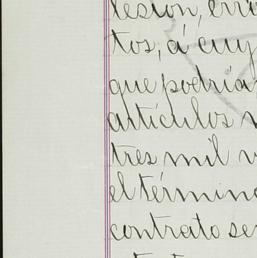 lesion, erro
tos, á cuy
que podría
artículos
tres mil
el término
contrato se